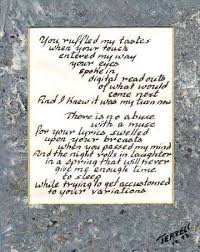 You ruffled my tastes
when your touch
entered my way
your eyes
spoke in
digital read outs
of what would
come next
And I knew it was my turn now
There is no abuse
with a muse
for your lyrics, swelled
upon your breasts
when you passed my mind
And the night rolls in laughter
in a spring that will never
give me enough time
to sleep
while trying to get accustomed
to your variations
TERRELL